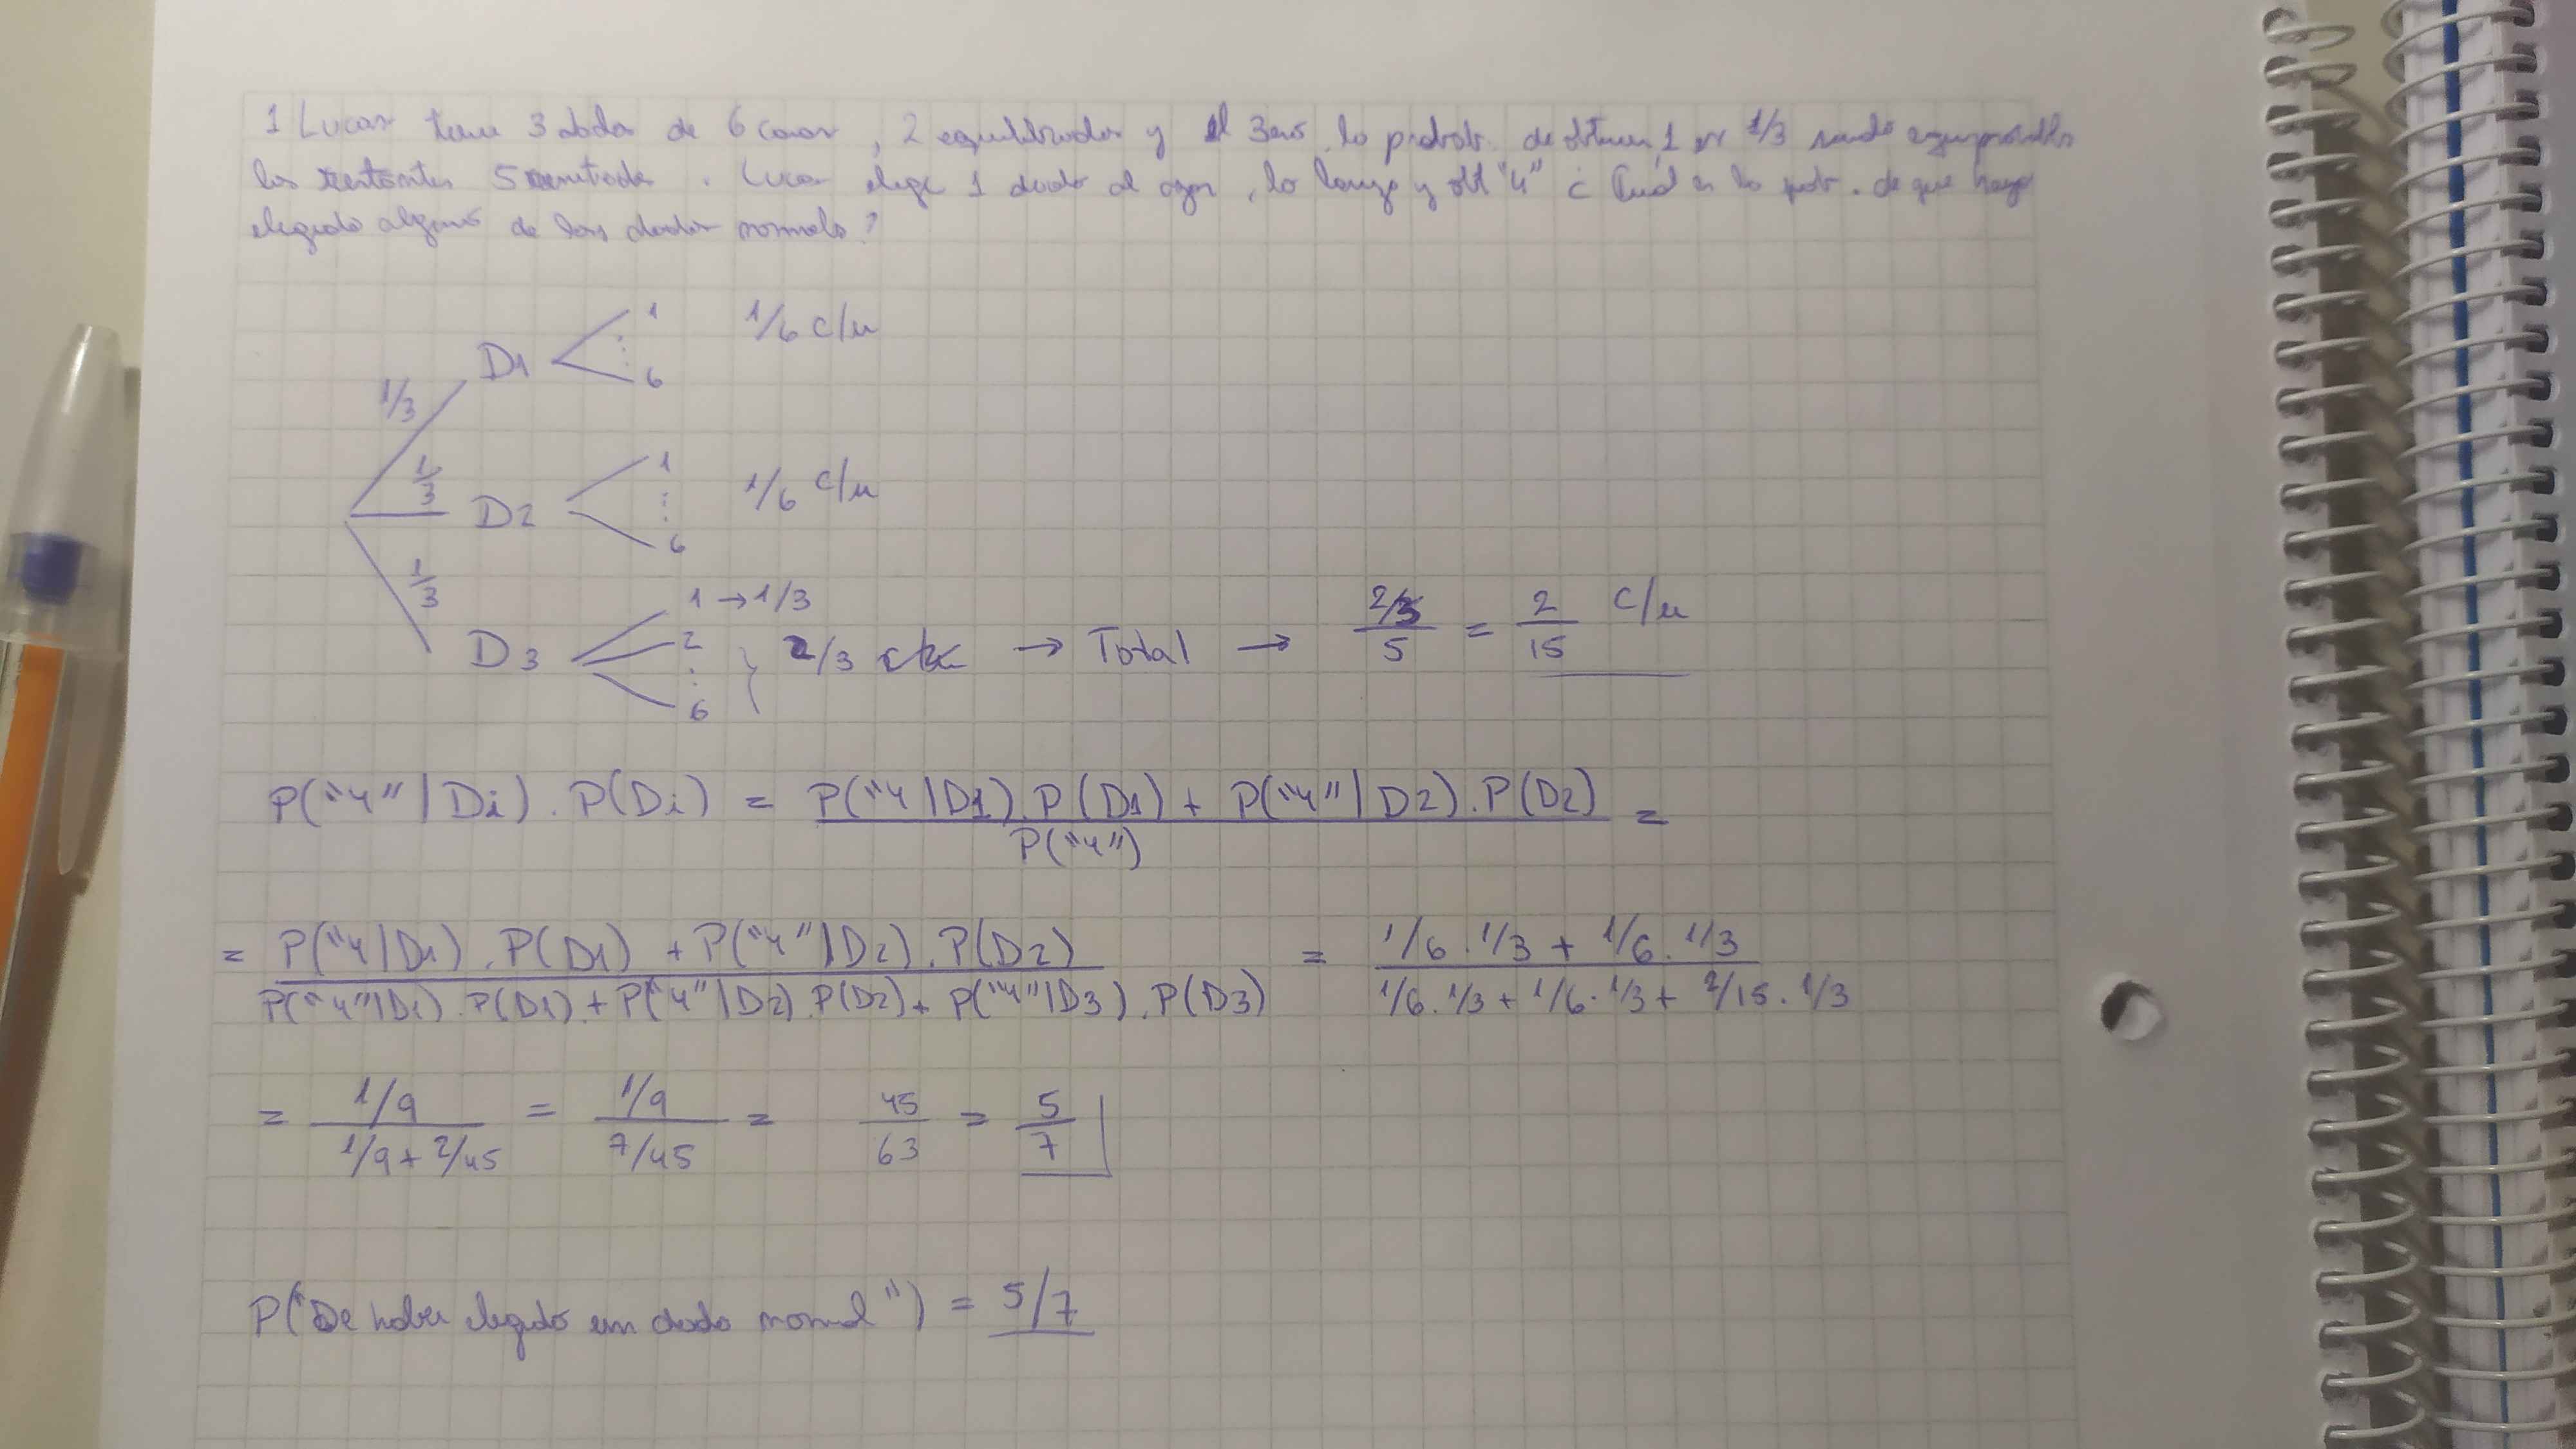 1 Lucas tiene 3 dados de 6 caras, 2 equilibrados y el 3ero la probab. de obtener 1 es 1/3 siendo equiprobables
los restantes 5 resultados. Lucas elige 1 dado al azar, lo lanza y obt "4" ¿Cuál es la prob. de que haya
elegido alguno de los dados normales?
1/3 D1 1 ⋮ 6 1/6 c/u
1/3 D2 1 ⋮ 6 1/6 c/u
1/3 D3 1 → 1/3
2 ⋮ 6 } 2/3 → Total → 2/3 / 5 = 2/15 c/u
P("4" | Di) . P(Di) = P("4 | D1) . P(D1) + P("4" | D2) . P(D2) / P("4") =
= P("4 | D1) . P(D1) + P("4" | D2) . P(D2) / P("4" | D1) . P(D1) + P("4" | D2) . P(D2) + P("4" | D3) . P(D3) = 1/6 . 1/3 + 1/6 . 1/3 / 1/6 . 1/3 + 1/6 . 1/3 + 2/15 . 1/3
= 1/9 / 1/9 + 2/45 = 1/9 / 7/45 = 45/63 = 5/7
P("De haber elegido un dado normal") = 5/7